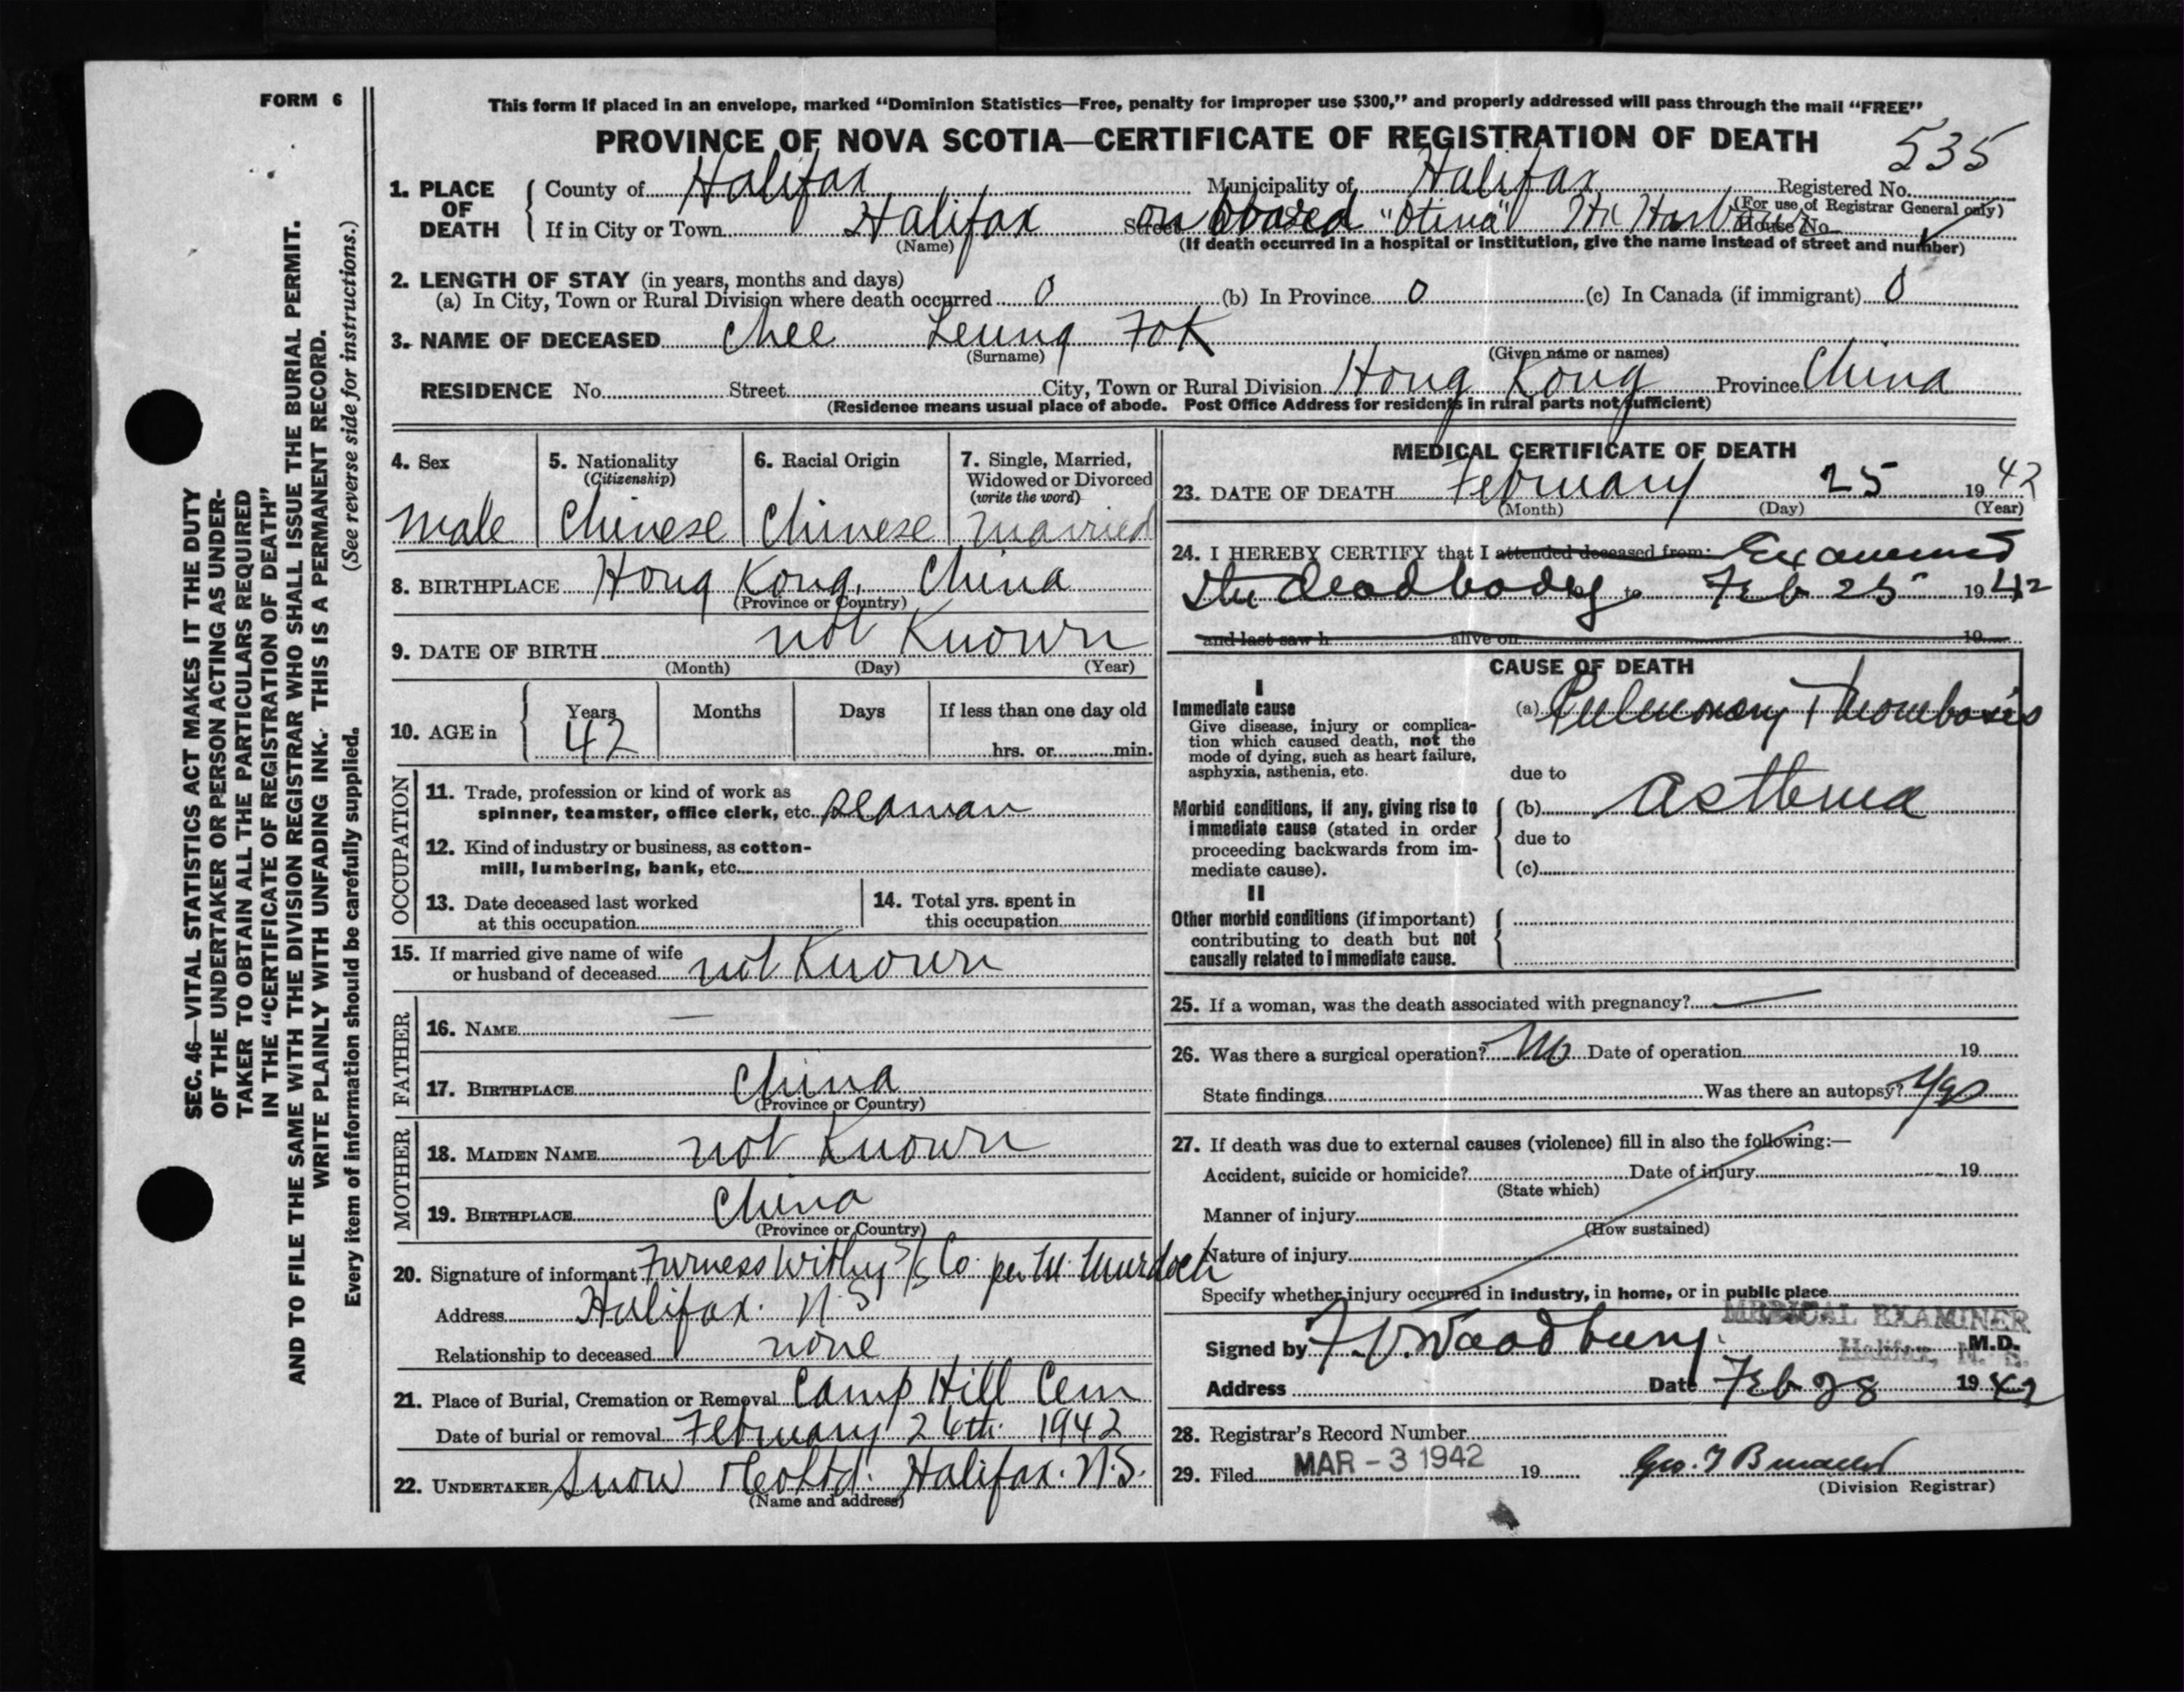 FORM 6
This form if placed in an envelope, marked “Dominion Statistics—Free, penalty for improper use $300,” and properly addressed will pass through the mail “FREE”
PROVINCE OF NOVA SCOTIA—CERTIFICATE OF REGISTRATION OF DEATH
535
1. PLACE OF DEATH County of Halifax Municipality of Halifax Registered No.
(For use of Registrar General only)
If in City or Town Halifax Street on board "Otina" Hx Harbour House No.
(Name) (If death occurred in a hospital or institution, give the name instead of street and number)
2. LENGTH OF STAY (in years, months and days)
(a) In City, Town or Rural Division where death occurred 0 (b) In Province 0 (c) In Canada (if immigrant) 0
3. NAME OF DECEASED Chee Leung Fok
(Surname) (Given name or names)
RESIDENCE No. Street City, Town or Rural Division Hong Kong Province China
(Residence means usual place of abode. Post Office Address for residents in rural parts not sufficient)
4. Sex 5. Nationality (Citizenship) 6. Racial Origin 7. Single, Married, Widowed or Divorced (write the word)
male Chinese Chinese married
8. BIRTHPLACE Hong Kong, China
(Province or Country)
9. DATE OF BIRTH not Known
(Month) (Day) (Year)
10. AGE in Years Months Days If less than one day old
42 hrs. or min.
OCCUPATION
11. Trade, profession or kind of work as
spinner, teamster, office clerk, etc. seaman
12. Kind of industry or business, as cotton-
mill, lumbering, bank, etc.
13. Date deceased last worked
at this occupation
14. Total yrs. spent in
this occupation
15. If married give name of wife
or husband of deceased not Known
FATHER
16. NAME —
17. BIRTHPLACE China
(Province or Country)
MOTHER
18. MAIDEN NAME not Known
19. BIRTHPLACE China
(Province or Country)
20. Signature of informant Furness Withy S/S Co per M. Murdoch
Address Halifax. N.S
Relationship to deceased none
21. Place of Burial, Cremation or Removal Camp Hill Cem
Date of burial or removal February 26th 1942
22. UNDERTAKER Snow & Co Ltd. Halifax. N.S.
(Name and address)
MEDICAL CERTIFICATE OF DEATH
23. DATE OF DEATH February 25 1942
(Month) (Day) (Year)
24. I HEREBY CERTIFY that I attended deceased from: Examined
the dead body to Feb 25 1942
and last saw h alive on 19
CAUSE OF DEATH
I
Immediate cause
Give disease, injury or complica-
tion which caused death, not the
mode of dying, such as heart failure,
asphyxia, asthenia, etc.
(a) Pulmonary Thrombosis
due to
Morbid conditions, if any, giving rise to
immediate cause (stated in order
proceeding backwards from im-
mediate cause).
(b) Asthma
due to
(c)
II
Other morbid conditions (if important)
contributing to death but not
causally related to immediate cause.
25. If a woman, was the death associated with pregnancy? —
26. Was there a surgical operation? No Date of operation 19
State findings Was there an autopsy? Yes
27. If death was due to external causes (violence) fill in also the following:—
Accident, suicide or homicide? Date of injury 19
(State which)
Manner of injury
(How sustained)
Nature of injury
Specify whether injury occurred in industry, in home, or in public place
MEDICAL EXAMINER
Halifax, N. S.
Signed by F.V. Woodbury M.D.
Address Date Feb 28 1942
28. Registrar's Record Number
29. Filed MAR - 3 1942 19
(Division Registrar)
SEC. 46—VITAL STATISTICS ACT MAKES IT THE DUTY
OF THE UNDERTAKER OR PERSON ACTING AS UNDER-
TAKER TO OBTAIN ALL THE PARTICULARS REQUIRED
IN THE “CERTIFICATE OF REGISTRATION OF DEATH”
AND TO FILE THE SAME WITH THE DIVISION REGISTRAR WHO SHALL ISSUE THE BURIAL PERMIT.
WRITE PLAINLY WITH UNFADING INK. THIS IS A PERMANENT RECORD.
Every item of information should be carefully supplied. (See reverse side for instructions.)